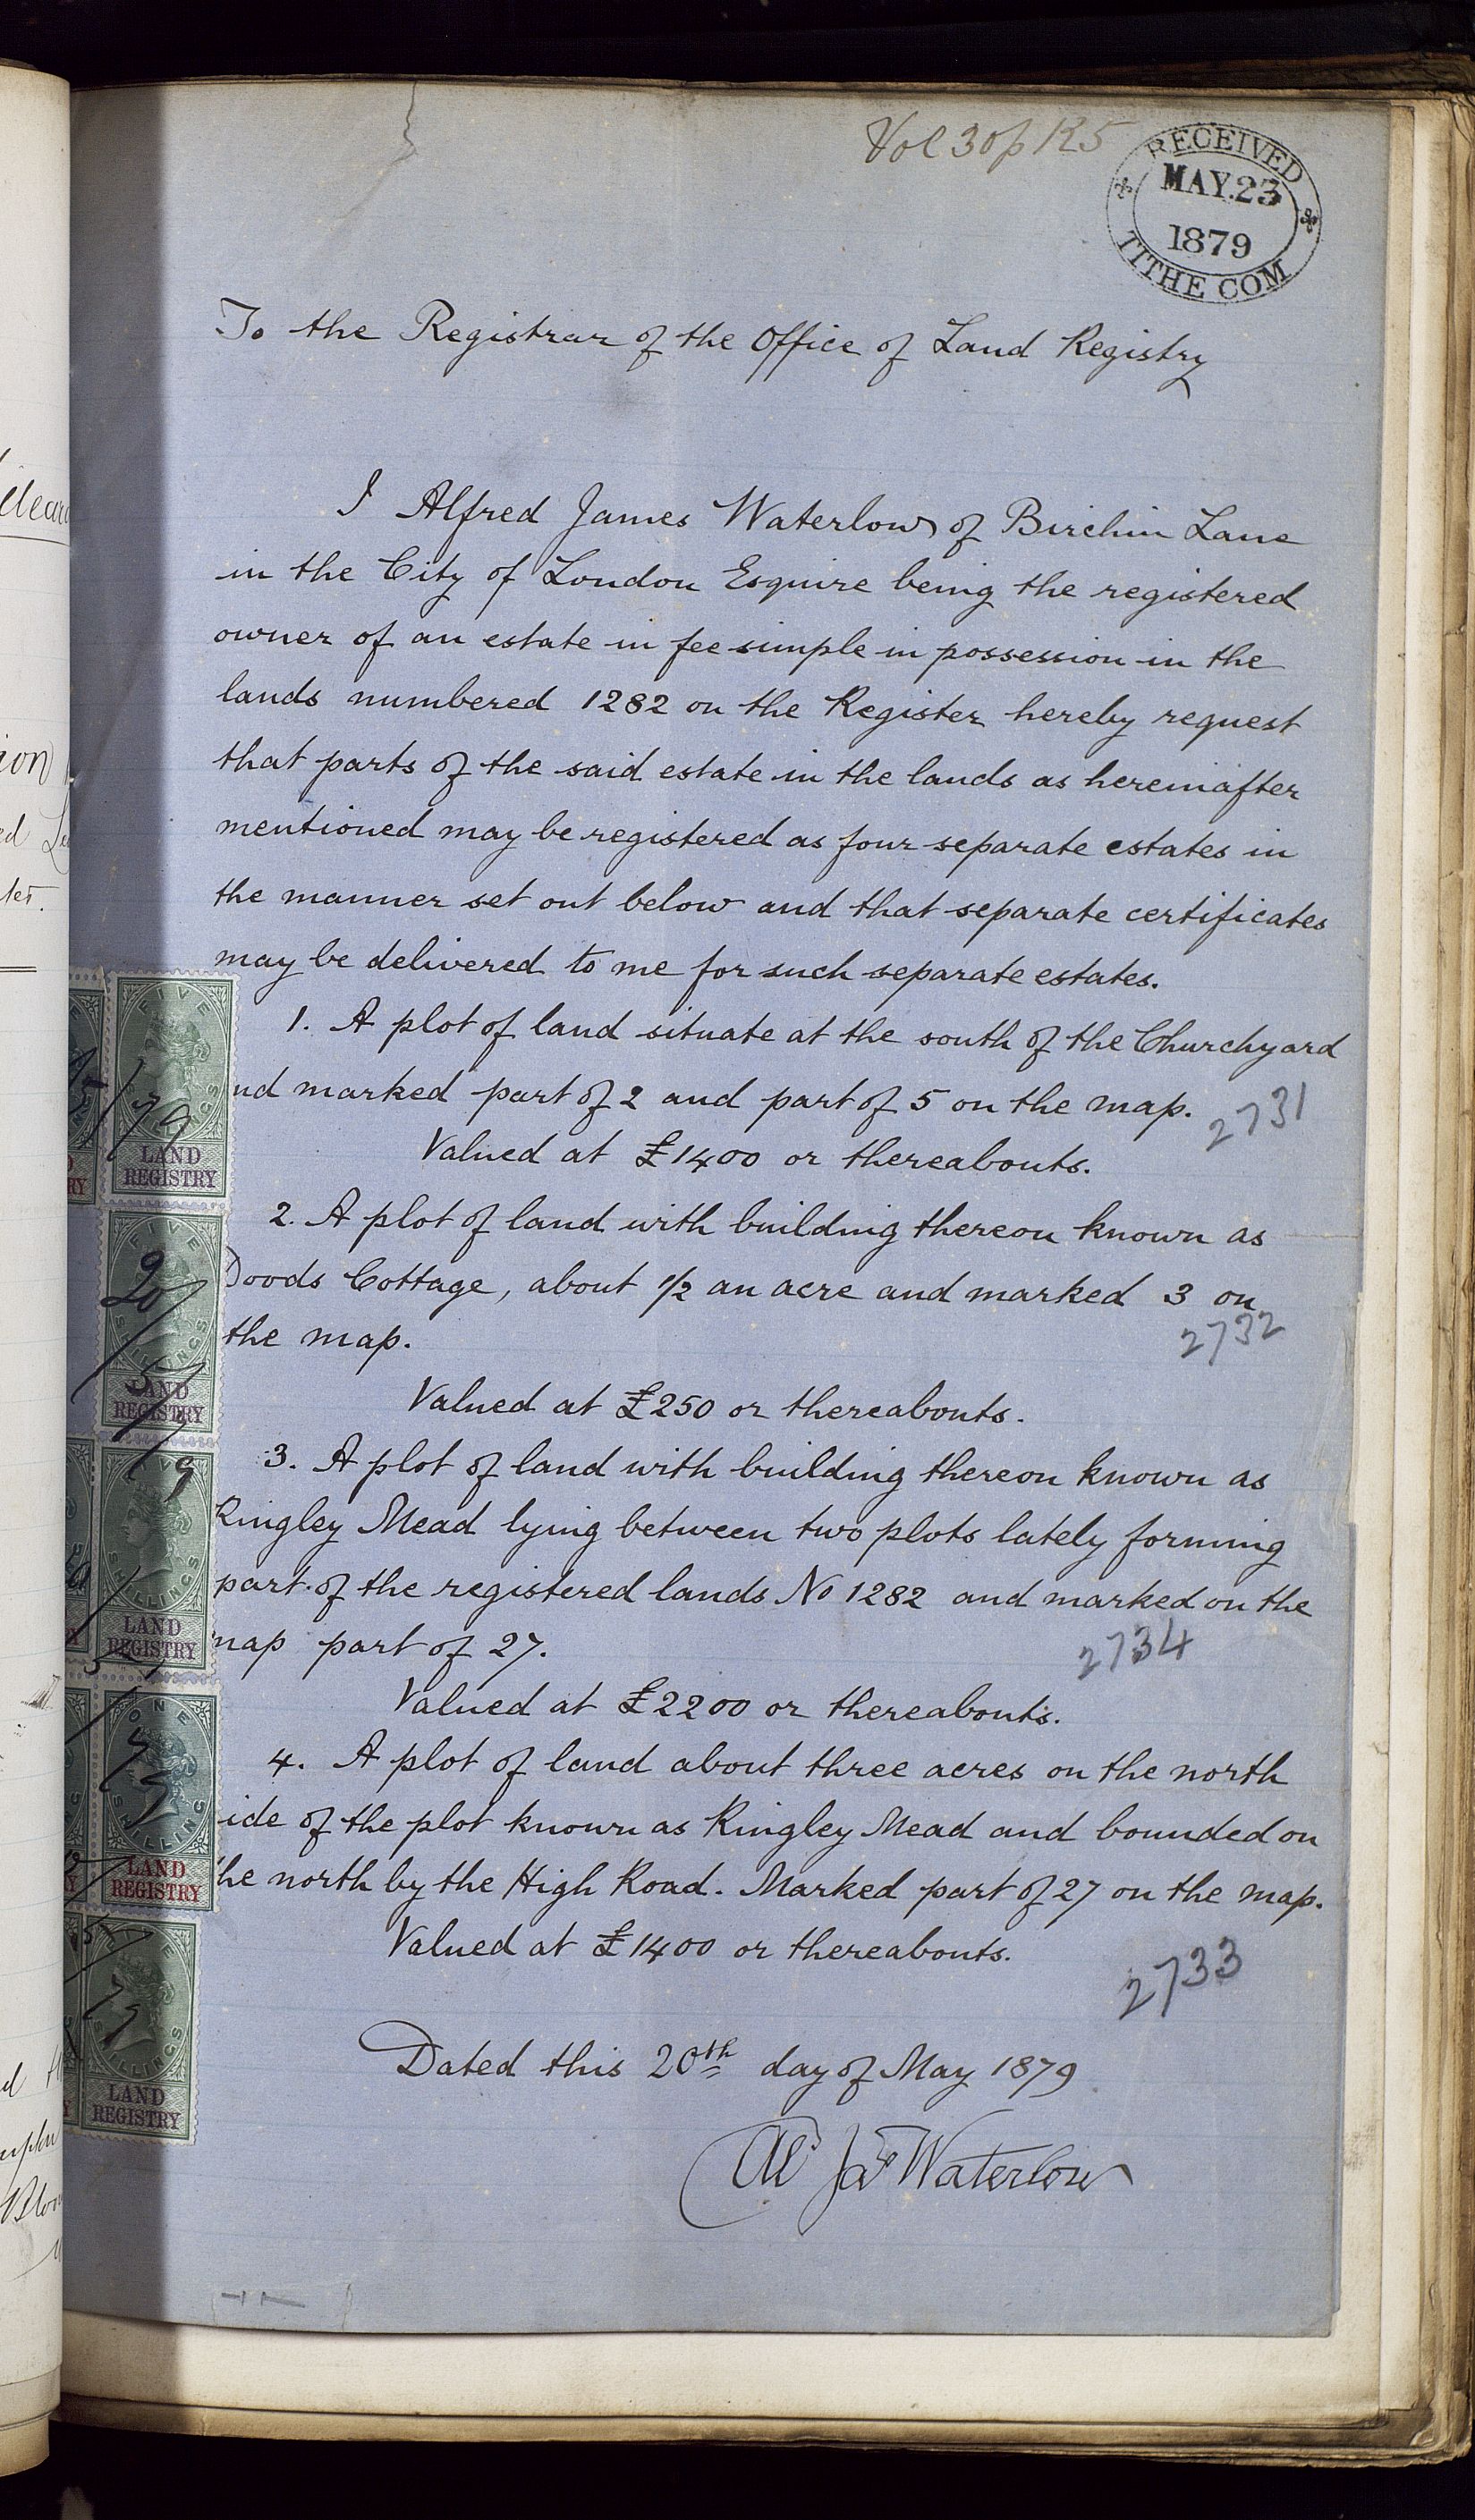 Vol 30 p 125
RECEIVED
MAY.23
1879
TITHE COM
To the Registrar of the Office of Land Registry
I Alfred James Waterlow of Birchin Lane
in the City of London Esquire being the registered
owner of an estate in fee simple in possession in the
lands numbered 1282 on the Register hereby request
that parts of the said estate in the lands as hereinafter
mentioned may be registered as four separate estates in
the manner set out below and that separate certificates
may be delivered to me for such separate estates.
1. A plot of land situate at the south of the Churchyard
nd marked part of 2 and part of 5 on the map.
2731
Valued at £1400 or thereabouts.
2. A plot of land with building thereon known as
Doods Cottage, about 1/2 an acre and marked 3 on
the map.
2732
Valued at £250 or thereabouts.
3. A plot of land with building thereon known as
Ringley Mead lying between two plots lately forming
part of the registered lands No 1282 and marked on the
map part of 27.
2734
Valued at £2200 or thereabouts.
4. A plot of land about three acres on the north
ide of the plot known as Ringley Mead and bounded on
the north by the High Road. Marked part of 27 on the map.
Valued at £1400 or thereabouts.
2733
Dated this 20th day of May 1879
Alf Jas Waterlow
FIVE
SHILLINGS
LAND
REGISTRY
FIVE
SHILLINGS
LAND
REGISTRY
FIVE
SHILLINGS
LAND
REGISTRY
ONE
SHILLING
LAND
REGISTRY
SHILLINGS
LAND
REGISTRY